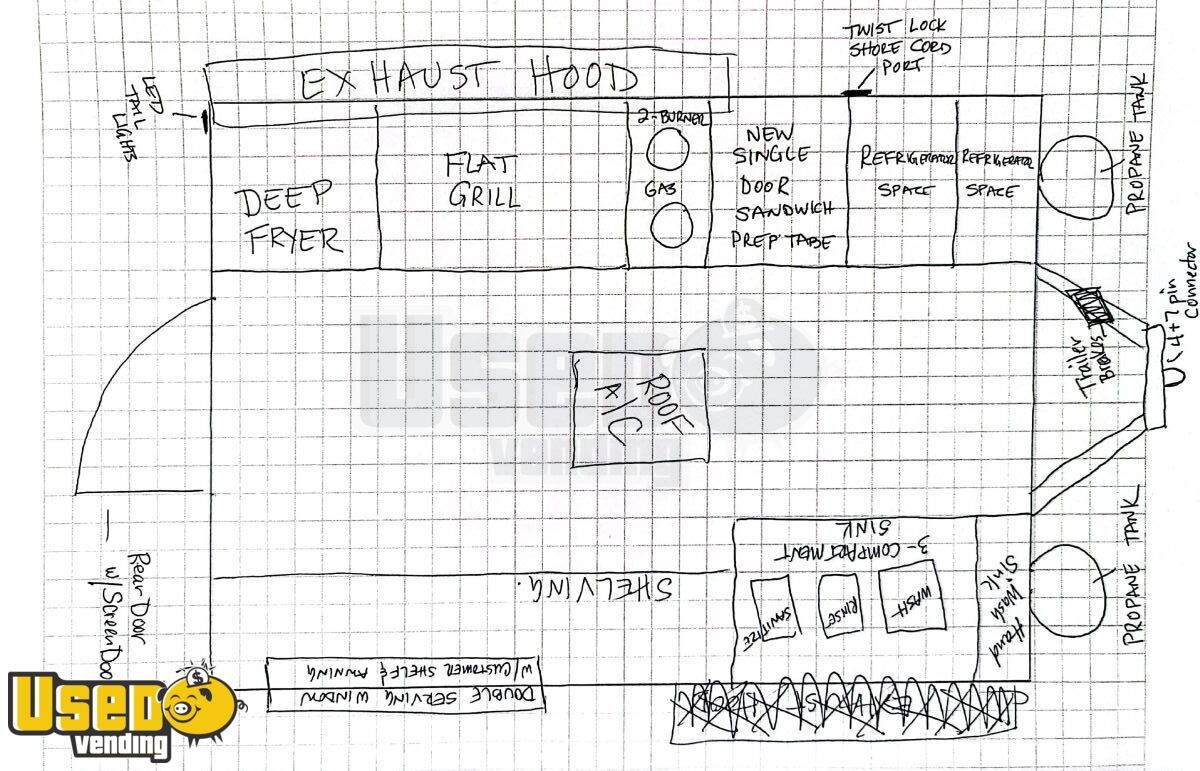 TWIST LOCK
SHORE CORD
PORT
EXHAUST HOOD
LED
TAIL
LIGHTS
2-BURNER
GAS
DEEP
FRYER
FLAT
GRILL
NEW
SINGLE
DOOR
SANDWICH
PREP TABLE
REFRIGERATOR
SPACE
REFRIGERATOR
SPACE
PROPANE TANK
4+7 pin
Connector
Trailer
Brakes
ROOF
A/C
USED
Vending
3-COMPARTMENT
SINK
WASH
RINSE
SANITIZE
Hand
Wash
Sink
PROPANE TANK
SHELVING.
Rear Door
w/Screen Doo
DOUBLE SERVING WINDOW
W/ CUSTOMER SHELF & AWNING
USED
Vending